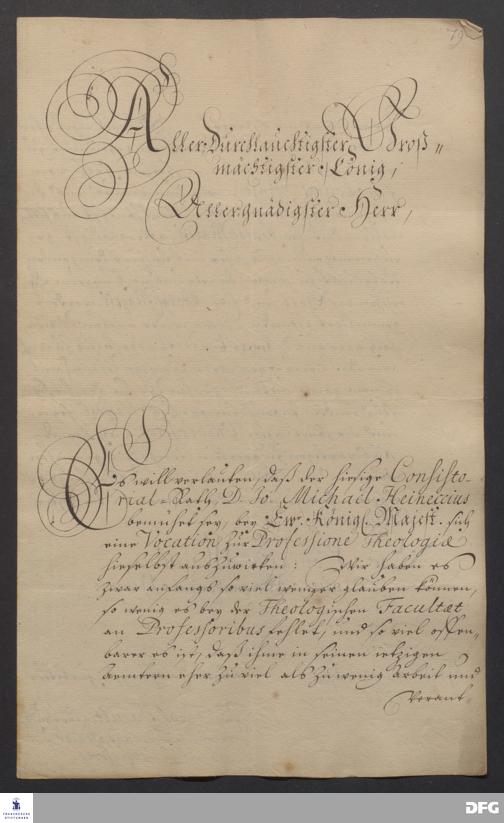 79
AllerDurchlauchtigster Groß-
mächtigster König,
Allergnädigster Herr,
Es will verlauten, daß der hiesige Consisto-
rial-Rath D. Jo. Michael Heineccius
bemühet sey, bey Ew. Königl. Majest. sich
eine Vocation zur Professione Theologiæ
hieselbst auszuwirken: Wir haben es
zwar anfangs so viel weniger glauben können,
so wenig es bey der Theologischen Facultæt
an Professoribus fehlet, und so viel offen-
barer es ist, daß ihme in seinen ietzigen
ämtern eher zu viel als zu wenig arbeit und
Verant-
FRANCKESCHE
STIFTUNGEN
DFG